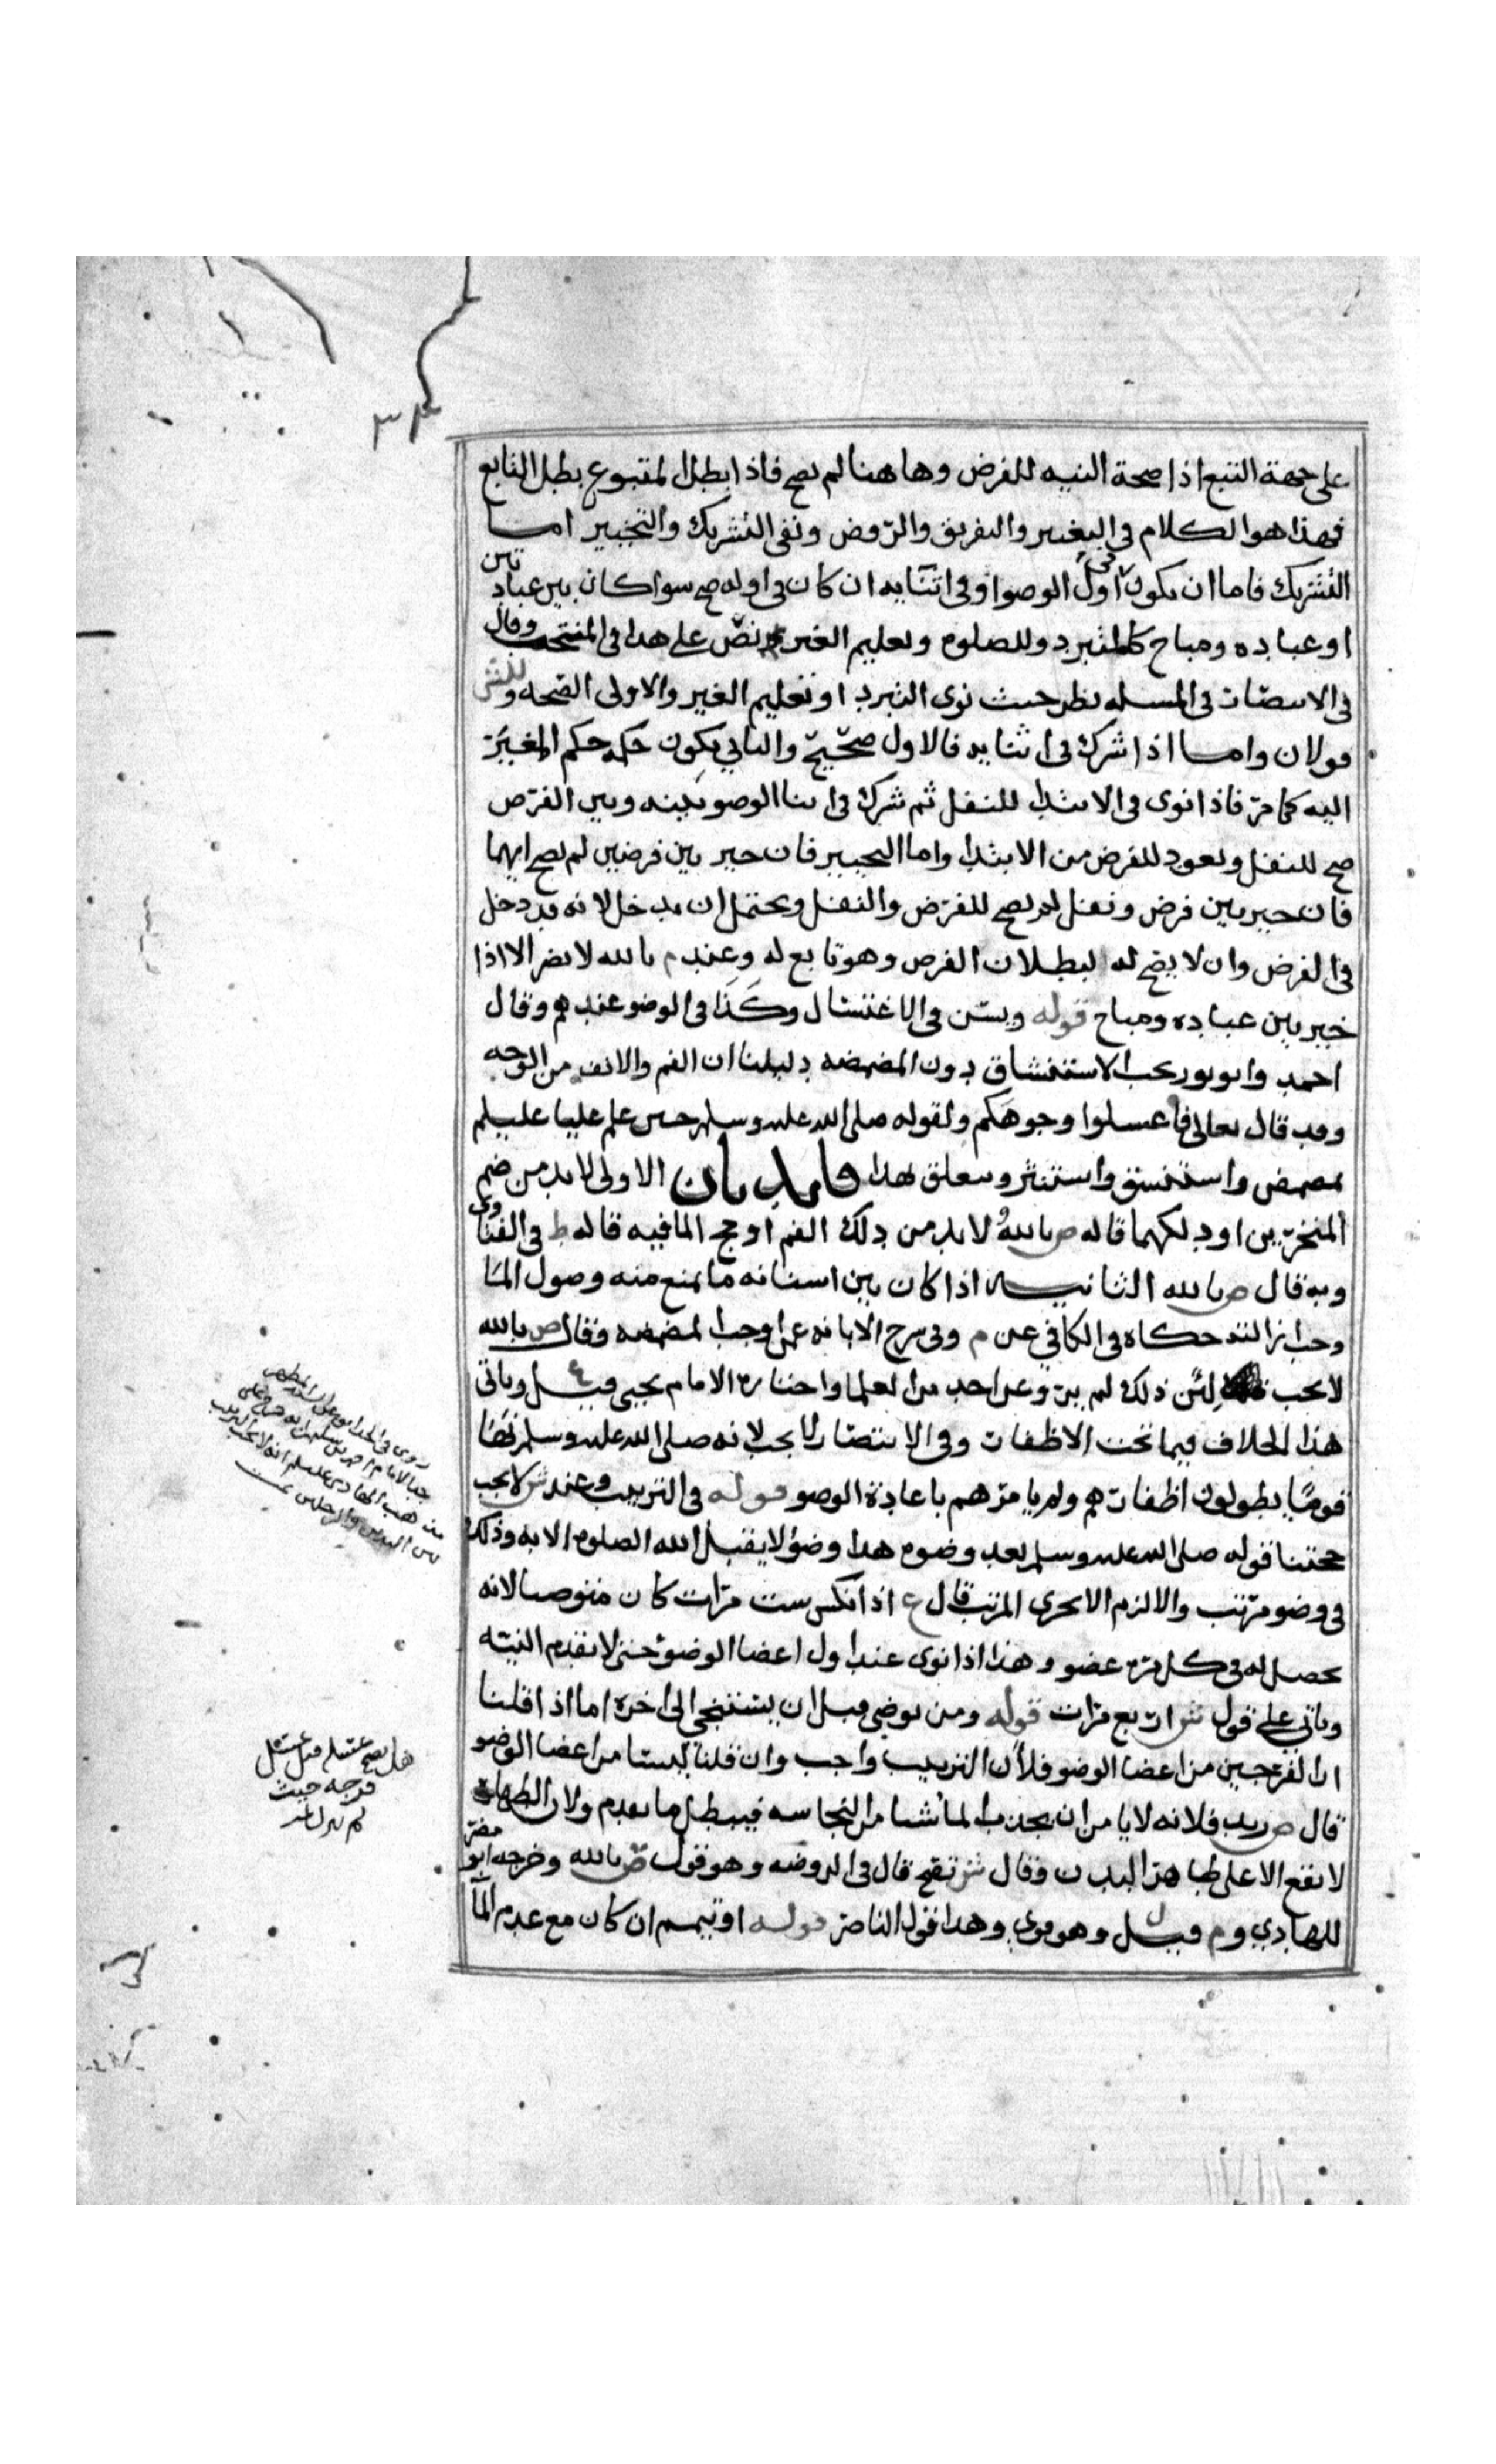 ٣٤
على جهة التبع اذا صحة النيه للفرض وهاهنا لم يصح فاذا بطل المتبوع بطل التابع
فهذا هو الكلام في التغيير والتفريق والرفض وبقي التشريك والتخيير اما
التشريك فاما ان يكون في اول الوضوا وفي اثنايه ان كان في اوله صح سوا كان بين عبادتين
او عباده ومباح كالتبرد وللصلوه وتعليم الغير نص على هذا في المنتخب وقال
في الانتصار في المسله نظر حيث نوى التبرد او تعليم الغير والاولى الصحه وللش
قولان واما اذا شرك في اثنايه فالاول صحيح والثاني يكون حكمه حكم المغير
اليه كما مر فاذا نوى في الابتدا للنفل ثم شرك في اثنا الوضو بينه وبين الفرض
صح للنفل ويعود للفرض من الابتدا واما التخيير فان خير بين فرضين لم يصح ايهما
فان خير بين فرض ونفل لم يصح للفرض والنفل ويحتمل ان يدخل لانه قد دخل
في الفرض وان لا يصح له لبطلان الفرض وهو تابع له وعند م بالله لا يضر الا اذا
خير بين عباده ومباح قوله ويسن في الاغتسال وكذا في الوضو عندهم وقال
احمد وابو ثور يجب الاستنشاق دون المضمضه دليلنا ان الفم والانف من الوجه
وقد قال تعالى فاغسلوا وجوهكم ولقوله صلى الله عليه وسلم حين علم عليا عليلم
تمضمض واستنشق واستنثر ويتعلق بهذا فايدتان الاولى لابد من ضم
المنخرين او دلكهما قاله ص بالله لا بد من دلك الفم او مج الما فيه قاله ط في الفتاوى
وبه قال ص بالله الثانيه اذا كان بين اسنانه ما يمنع منه وصول الما
وجب ازالته حكاه في الكافي عن م وفي شرح الابانه عمن اوجب المضمضه وقال ص بالله
لا يجب لئن ذلك لم يرو عن احد من العلما واختاره الامام يحيى قيل ع وياتي
هذا الخلاف فيما تحت الاظفار وفي الانتصار لا يجب لانه صلى الله عليه وسلم
قوما يطولون اظفارهم ولم يامرهم باعادة الوضو قوله في الترتيب وعند ش لا يجب
حجتنا قوله صلى الله عليه وسلم بعد وضوه هذا وضؤ لا يقبل الله الصلوه الا به وذلك
في وضو مرتب والا لزم الا يجزى المرتب قال ع اذا نكس ست مرات كان متوضا لانه
يحصل له في كل مره عضو وهذا اذا نوى عند اول اعضا الوضؤ حتى لا تقدم النيه
وياتي على قول ش اربع مرات قوله ومن توضى قبل ان يستنجي الى اخره اما اذا قلنا
ان الفرجين من اعضا الوضو فلأن الترتيب واجب وان قلنا ليستا من اعضا الوضو
قال ص زيد فلانه لا يامن ان يحدث لما شا من النجاسه فيبطل ما تقدم ولان الطهاره
لا تقع الا على طاهر البدن وقال ش تقع قال في الروضه وهو قول ص بالله وخرجه ابو مضر
للهادي وم قيل ل وهو قوي وهذا قول الناصر قوله او تيمم ان كان مع عدم الما
هل يصح غسله قبل غسل
فرجه حيث